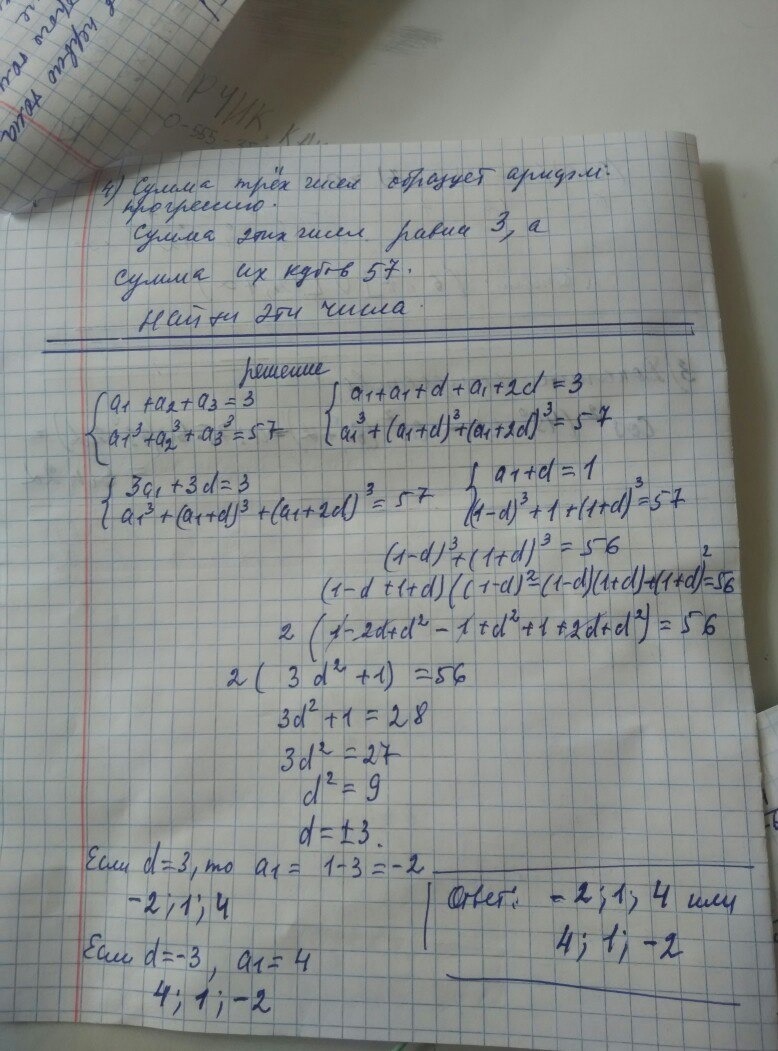 4) Сумма трёх чисел образует арифм.
прогрессию.
Сумма этих чисел равна 3, а
сумма их кубов 57.
Найти эти числа.
решение
{a1 + a2 + a3 = 3
a1³ + a2³ + a3³ = 57
{a1 + a1 + d + a1 + 2d = 3
a1³ + (a1+d)³ + (a1+2d)³ = 57
{3a1 + 3d = 3
a1³ + (a1+d)³ + (a1+2d)³ = 57
{a1 + d = 1
(1-d)³ + 1 + (1+d)³ = 57
(1-d)³ + (1+d)³ = 56
(1-d+1+d)((1-d)² - (1-d)(1+d) + (1+d)² = 56
2 (1 - 2d + d² - 1 + d² + 1 + 2d + d²) = 56
2 ( 3d² + 1) = 56
3d² + 1 = 28
3d² = 27
d² = 9
d = ±3.
Если d=3, то a1 = 1-3 = -2
-2; 1; 4
Если d=-3, a1 = 4
4; 1; -2
Ответ: -2; 1; 4 или
4; 1; -2